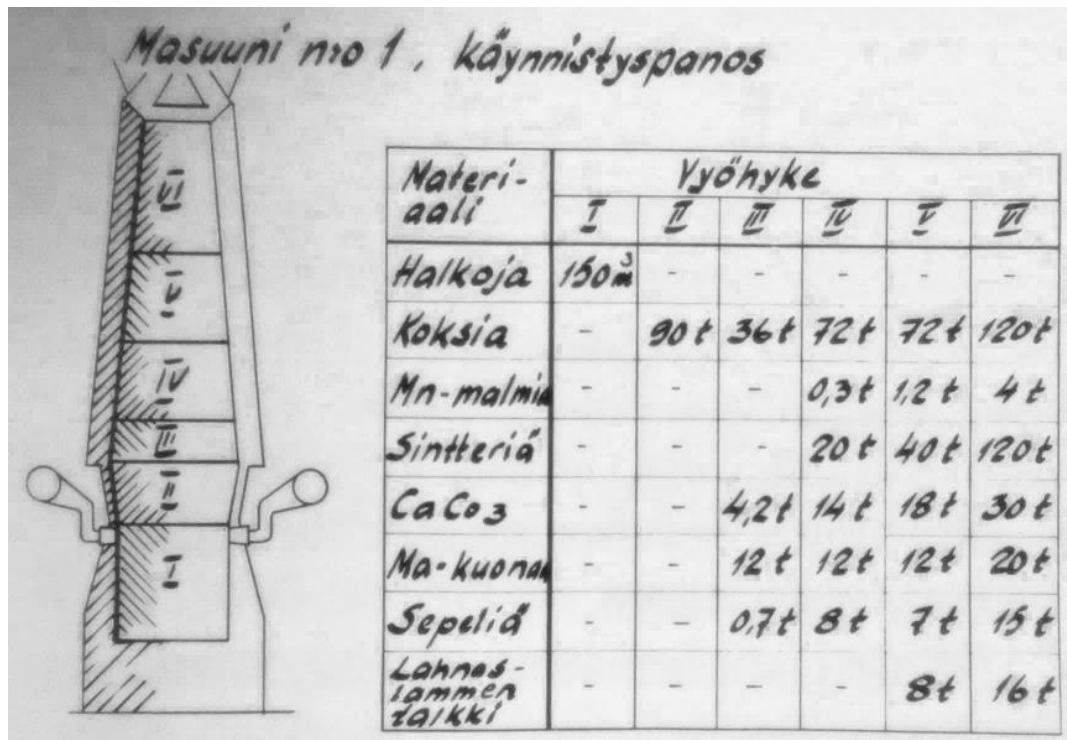 Masuuni n:o 1, käynnistyspanos
Materi- Vyöhyke
aali I II III IV V VI
Halkoja 150 m³ - - - - -
Koksia - 90 t 36 t 72 t 72 t 120 t
Mn-malmia - - - 0,3 t 1,2 t 4 t
Sintteriä - - - 20 t 40 t 120 t
CaCo3 - - 4,2 t 14 t 18 t 30 t
Ma-kuonaa - - 12 t 12 t 12 t 20 t
Sepeliä - - 0,7 t 8 t 7 t 15 t
Lahnas-
lammen - - - - 8 t 16 t
talkki
VI
V
IV
III
II
I